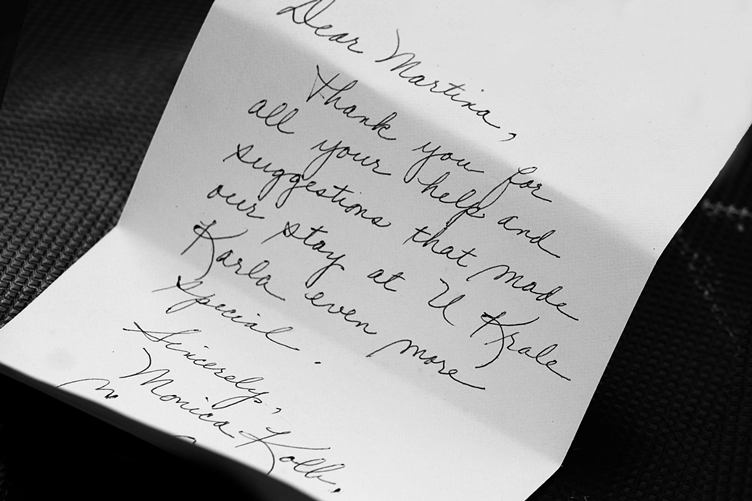 Dear Martina,
Thank you for
all your help and
suggestions that made
our stay at U Krale
Karla even more
special.
Sincerely,
Monica Kolb,